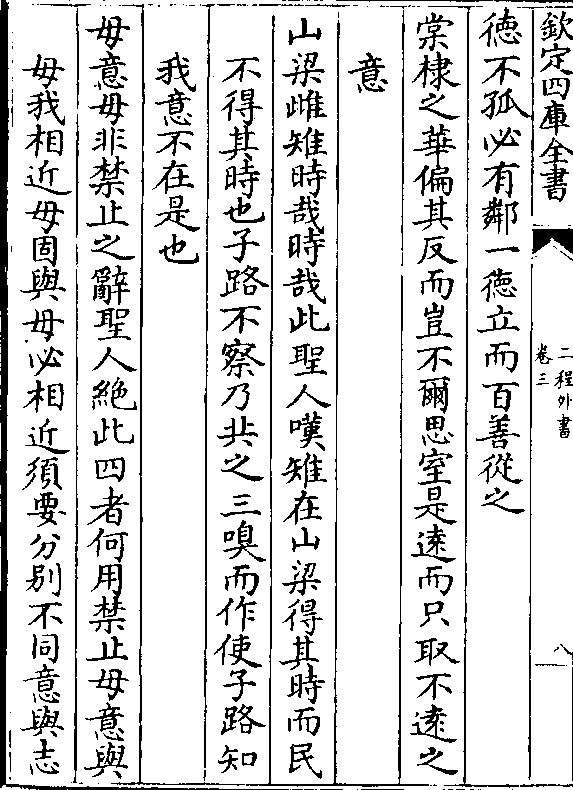 欽定四庫全書
二程外書
卷三
八
德不孤必有鄰一德立而百善從之
棠棣之華偏其反而豈不爾思室是逺而只取不逺之
意
山梁雌雉時哉時哉此聖人嘆雉在山梁得其時而民
不得其時也子路不察乃共之三嗅而作使子路知
我意不在是也
毋意毋非禁止之辭聖人絶此四者何用禁止毋意與
毋我相近毋固與毋必相近須要分别不同意與志